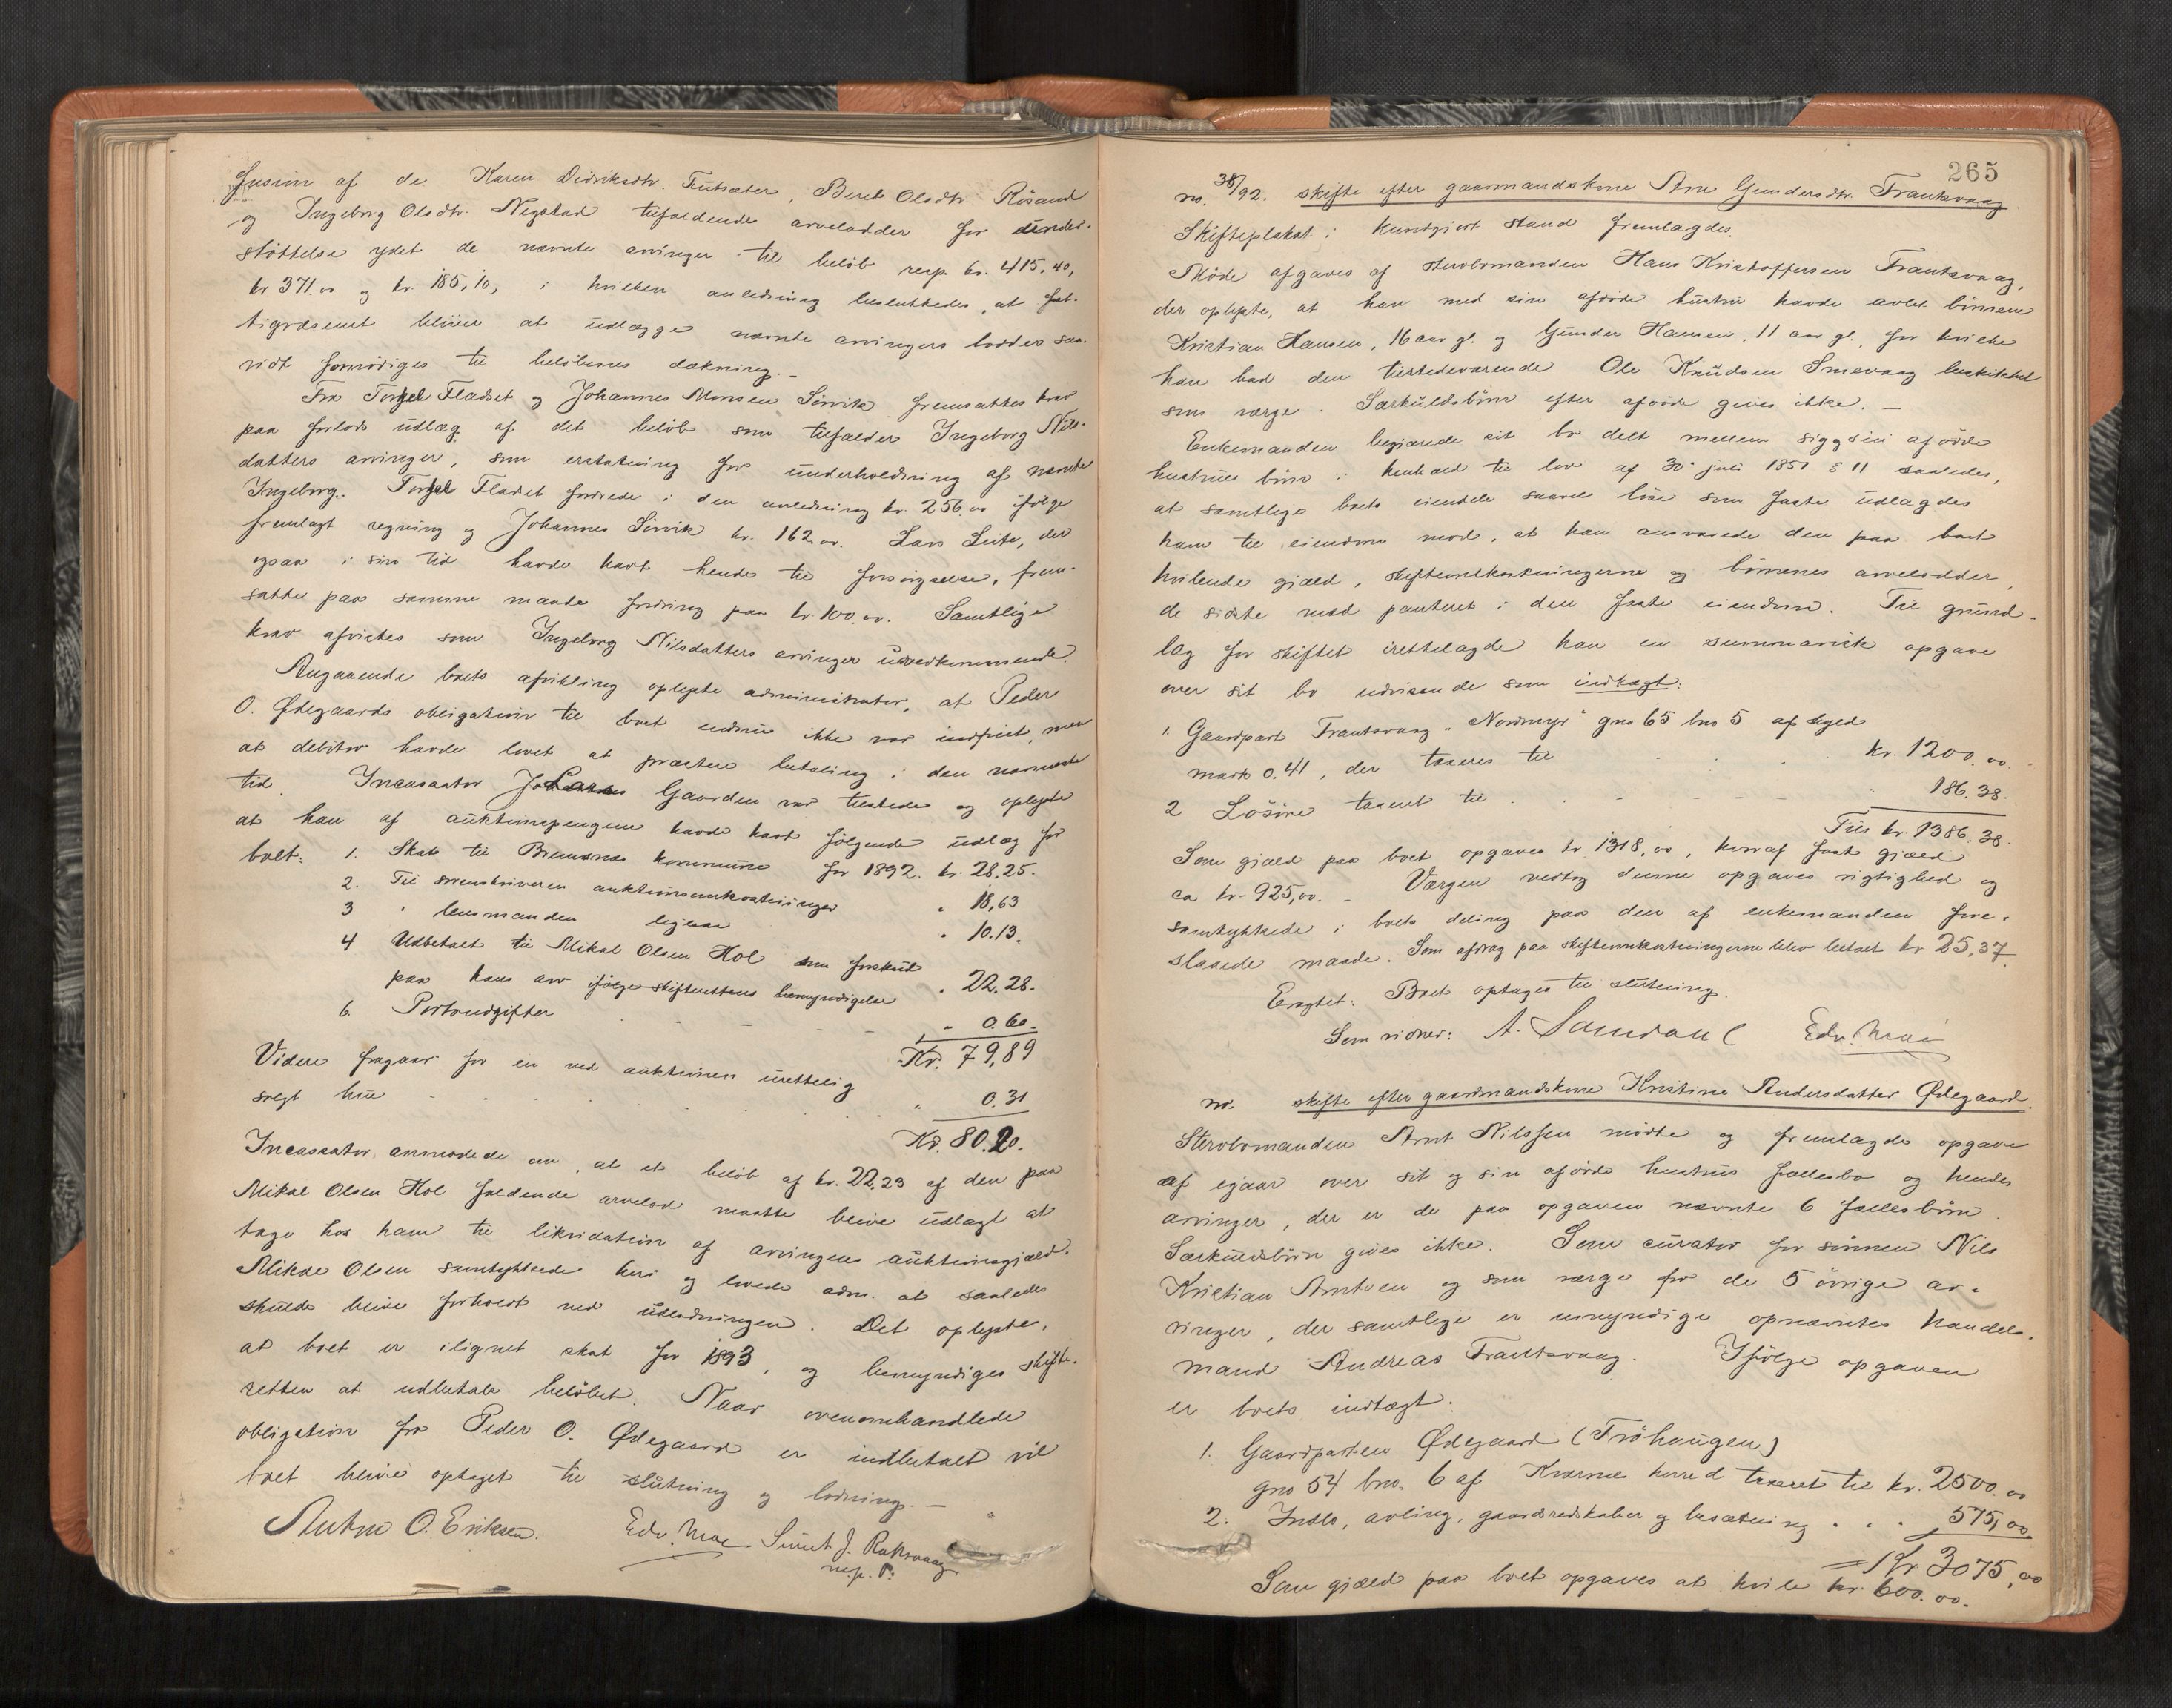 fusion af de Karen Didriksdtr. Futsæter, Beret Olsdtr. Røsand
og Ingeborg Olsdtr. Negstad tilfaldende arvelodder for under-
støttelse ydet de nævnte arvinger til beløb resp. kr. 415,40,
kr 371.00 og kr. 185,10, i hvilken anledning besluttedes, at fat-
tigvæsenet bliver at udlægge nævnte arvingers lodder saa-
vidt fornødiges til beløbenes dækning. –
Fra Torkel Fladset og Johannes Monsen Sørvik fremsattes krav
paa forlods udlæg af det beløb som tilfalder Ingeborg Nils-
datters arvinger, som erstatning for underholdning af nævnte
Ingeborg. Torkel Fladset fordrede i den anledning kr. 256.00 ifølge
fremlagt regning og Johannes Sørvik kr. 162.00. Lars Leite, der
ogsaa i sin tid havde havt hende til forsørgelse, frem-
satte paa samme maade fordring paa kr 100.00. Samtlige
krav afvistes som Ingeborg Nilsdatters arvinger uvedkommende.
Angaaende boets afvikling oplyste administrator, at Peder
O. Ødegaards obligation til boet endnu ikke var indfriet, men
at debitor havde lovet at præstere betaling i den nærmeste
tid. Incassator Gaarden var tilstede og oplyste
at han af auktionspengene havde havt følgende udlæg for
boet: 1. Skat til Bremsnes kommune for 1892. kr. 28,25.
2. Til sorenskriveren auktionsomkostninger " 18,63
3 " lensmanden ligesaa " 10.13.
4 Udbetalt til Mikal Olsen Hol som forskud
paa hans arv ifølge skifterettens bemyndigelse " 22.28.
6. Portoudgifter " 0.60.
Kr. 79,89
Videre fragaar for en ved auktionen urettelig
solgt hue " 0.31
Kr. 80.20.
Incassator anmodede om, at et beløb af kr. 22,23 af den paa
Mikal Olsen Hol faldende arvelod maatte blive udlagt at
tage hos ham til likvidation af arvingens auktionsgjæld.
Mikal Olsen samtykkede heri og lovede adm. at saaledes
skulde blive forholdt ved udlodningen. Det oplystes,
at boet er ilignet skat for 1893, og bemyndiges skifte-
retten at udbetale beløbet. Naar ovenomhandlede
obligation fra Peder O. Ødegaard er indbetalt vil
boet blive optaget til slutning og lodning. –
Anton O. Eriksen. Edv. Moe Sivert J. Røksvaag
m.p.P.
265
no. 38/92. skifte efter gaarmandskone Ane Gundersdtr. Frantsvaag
Skifteplakat i kundgjort stand fremlagdes.
Møde afgaves af stervbomanden Hans Kristoffersen Frantsvaag,
der oplyste, at han med sin afdøde hustru havde avlet børnene
Kristian Hansen, 16 aar gl. og Gunder Hansen, 11 aar gl., for hvilke
han bad den tilstedeværende Ole Knudsen Smevaag beskikket
som værge. Særkuldsbørn efter afdøde gives ikke. –
Enkemanden begjærede sit bo delt mellem sig og sin afdøde
hustrues børn i henhold til lov af 30te juli 1851 § 11 saaledes,
at samtlige boets eiendele saavel løse som faste udlagdes
ham til eiendom mod, at han ansvarede den paa boet
hvilende gjæld, skifteomkostningerne og børnenes arvelodder,
de sidste mod panteret i den faste eiendom. Til grund-
lag for skiftet irettelagde han en summarisk opgave
over sit bo udvisende som indtægt:
1. Gaardpart Frantsvaag "Nordmyr" gno 65 bno 5 af skyld
mark 0.41, der taxeres til kr. 1200.00.
2 Løsøre taxeret til " 186.38.
Tils kr. 1386.38.
Som gjæld paa boet opgaves kr. 1318,00, hvoraf fast gjæld
ca kr 925,00. – Værgen vedtog denne opgaves rigtighed og
samtykkede i boets deling paa den af enkemanden fore-
slaaede maade. Som afdrag paa skifteomkostningerne blev betalt kr 25,37.
Eragtet: Boet optages til slutning.
Som vidner: A. Samdahl Edv. Moe
no. skifte efter gaardmandskone Kristine Andersdatter Ødegaard.
Stervbomanden Arnt Nilssen mødte og fremlagde opgave
af igaar over sit og sin afdøde hustrus fællesbo og hendes
arvinger, der er de paa opgaven nævnte 6 fællesbørn.
Særkuldsbørn gives ikke. Som curator for sønnen Nils
Kristian Arntsen og som værge for de 5 øvrige ar-
vinger, der samtlige er umyndige opnævntes handels-
mand Andreas Frantsvaag. Ifølge opgaven
er boets indtægt:
1. Gaardparten Ødegaard (Trøhaugen)
gno 54 bno. 6 af Kvernes herred taxeret til kr. 2500.00
2. Indbo, avling, gaardsredskaber og besætning 575,00
Kr 3075,00
Som gjæld paa boet opgaves at hvile kr. 600.00.